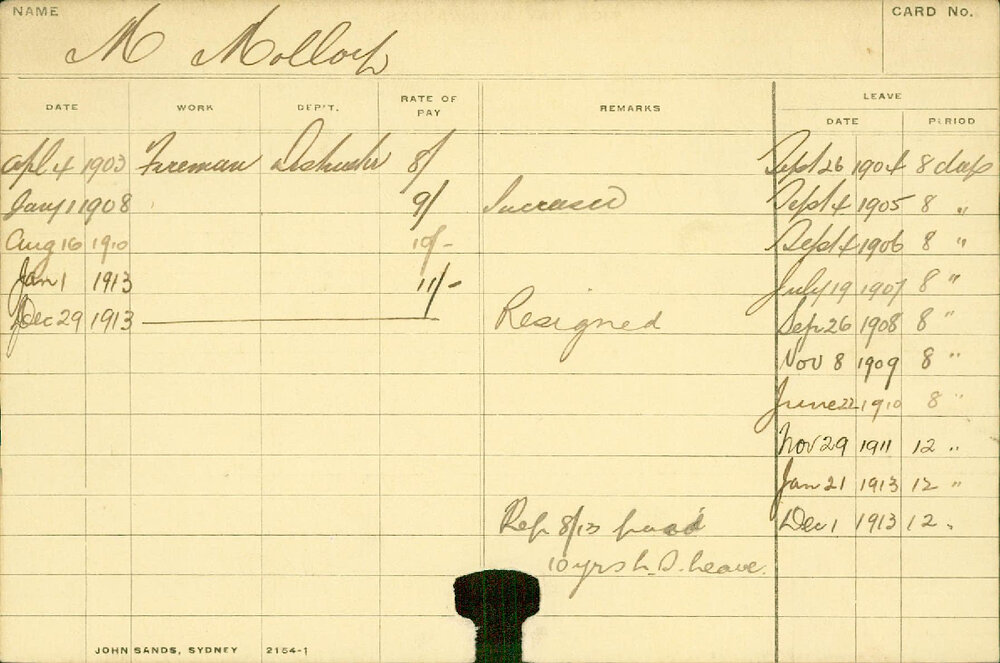 NAME CARD No.
M Molloy
DATE WORK DEP'T. RATE OF PAY REMARKS LEAVE
DATE PERIOD
Apl 4 1903 Fireman 8/ Sept 26 1904 8 days
Jany 1 1908 9/ Increased Sept 4 1905 8 "
Aug 16 1910 10/- Sept 4 1906 8 "
Jan 1 1913 11/- July 19 1907 8 "
Dec 29 1913 Resigned Sep 26 1908 8 "
Nov 8 1909 8 "
June 22 1910 8 "
Nov 29 1911 12 "
Jan 21 1913 12 "
Rep 8/13 Dec 1 1913 12 "
10 yrs L. S. Leave.
JOHN SANDS, SYDNEY 2154-1